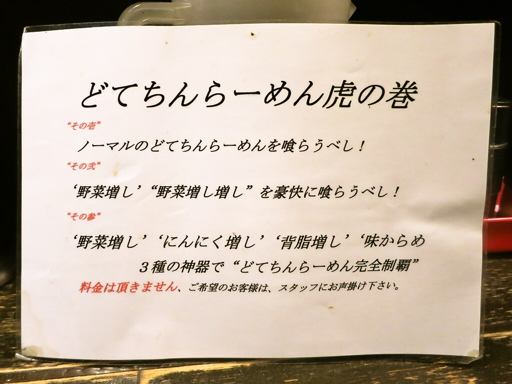 どてちんらーめん虎の巻
“その壱”
ノーマルのどてちんらーめんを喰らうべし！
“その弐”
‘野菜増し’“野菜増し増し”を豪快に喰らうべし！
“その参”
‘野菜増し’‘にんにく増し’‘背脂増し’‘味からめ
３種の神器で“どてちんらーめん完全制覇”
料金は頂きません、ご希望のお客様は、スタッフにお声掛け下さい。